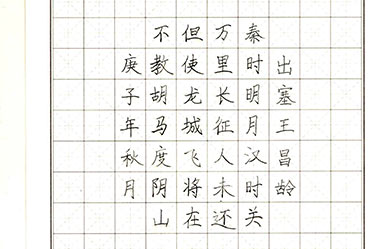 出塞王昌龄
秦时明月汉时关
万里长征人未还
但使龙城飞将在
不教胡马度阴山
庚子年秋月